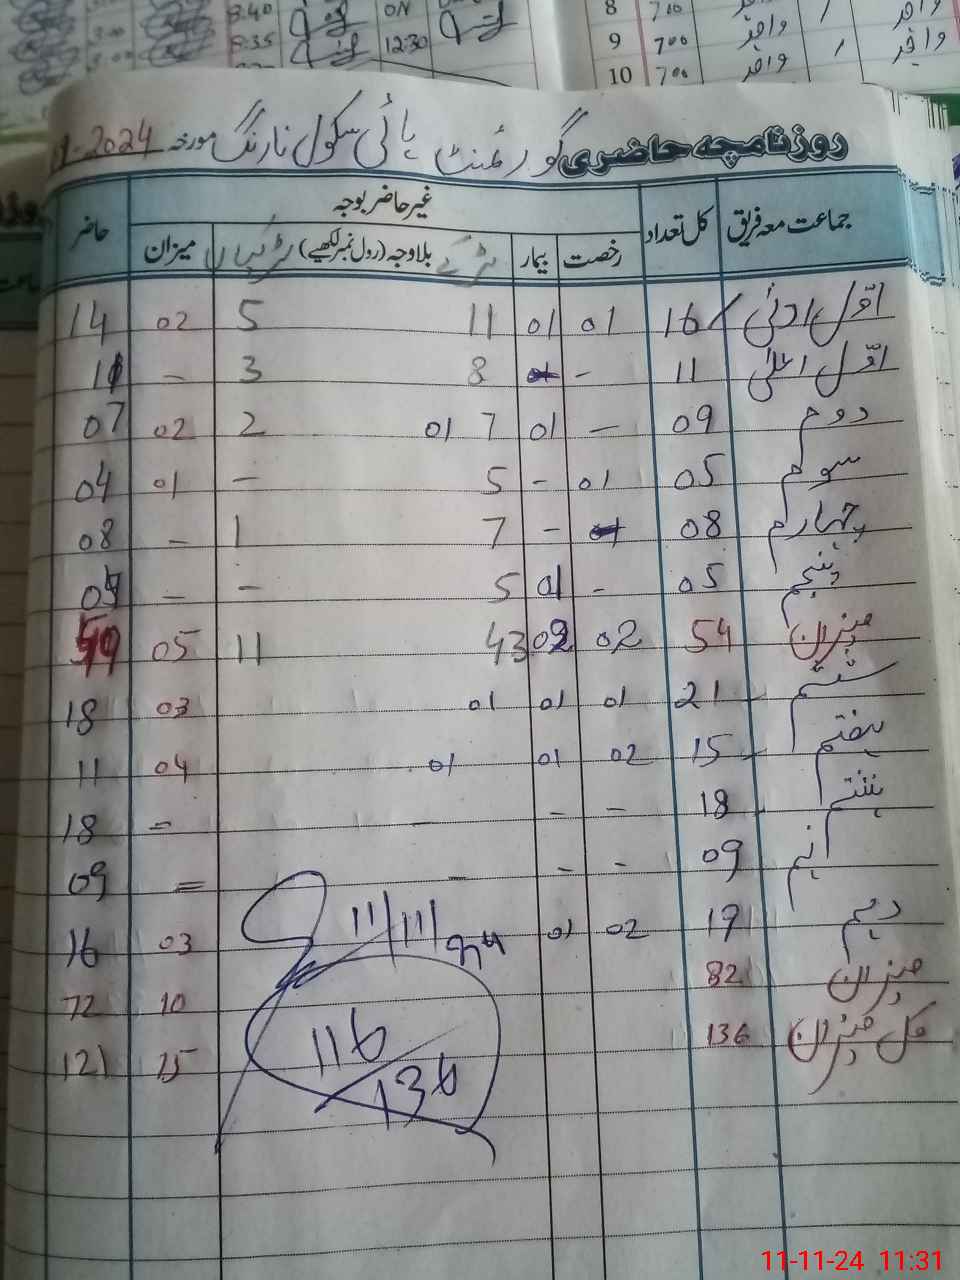 8 700 وافر / وافر
3:40 ON
8:35 12:30
9 700 وافر / وافر
10 700 وافر
روزنامچہ حاضری گورنمنٹ ہائی سکول نارنگ مورخہ 2024
جماعت معہ فریق کل تعداد غیر حاضر بوجہ حاضر
رخصت بیمار بلاوجہ (رول نمبر لکھیے) میزان
لڑکے لڑکیاں
اوّل ادنیٰ 16 01 01 11 5 02 14
اوّل اعلیٰ 11 - 8 3 - 11
دوم 09 - 01 7 01 2 02 07
سوم 05 01 - 5 - 01 04
چہارم 08 - 7 1 - 08
پنجم 05 - 01 5 - - 05
میزان 54 02 02 43 11 05
ششم 21 01 01 01 03 18
ہفتم 15 02 01 01 04 11
ہشتم 18 - - - = 18
نہم 09 - - - = 09
دہم 19 02 01 03 16
11/11
میزان 82 10 72
کل میزان 136 15 121
116/136
11-11-24 11:31